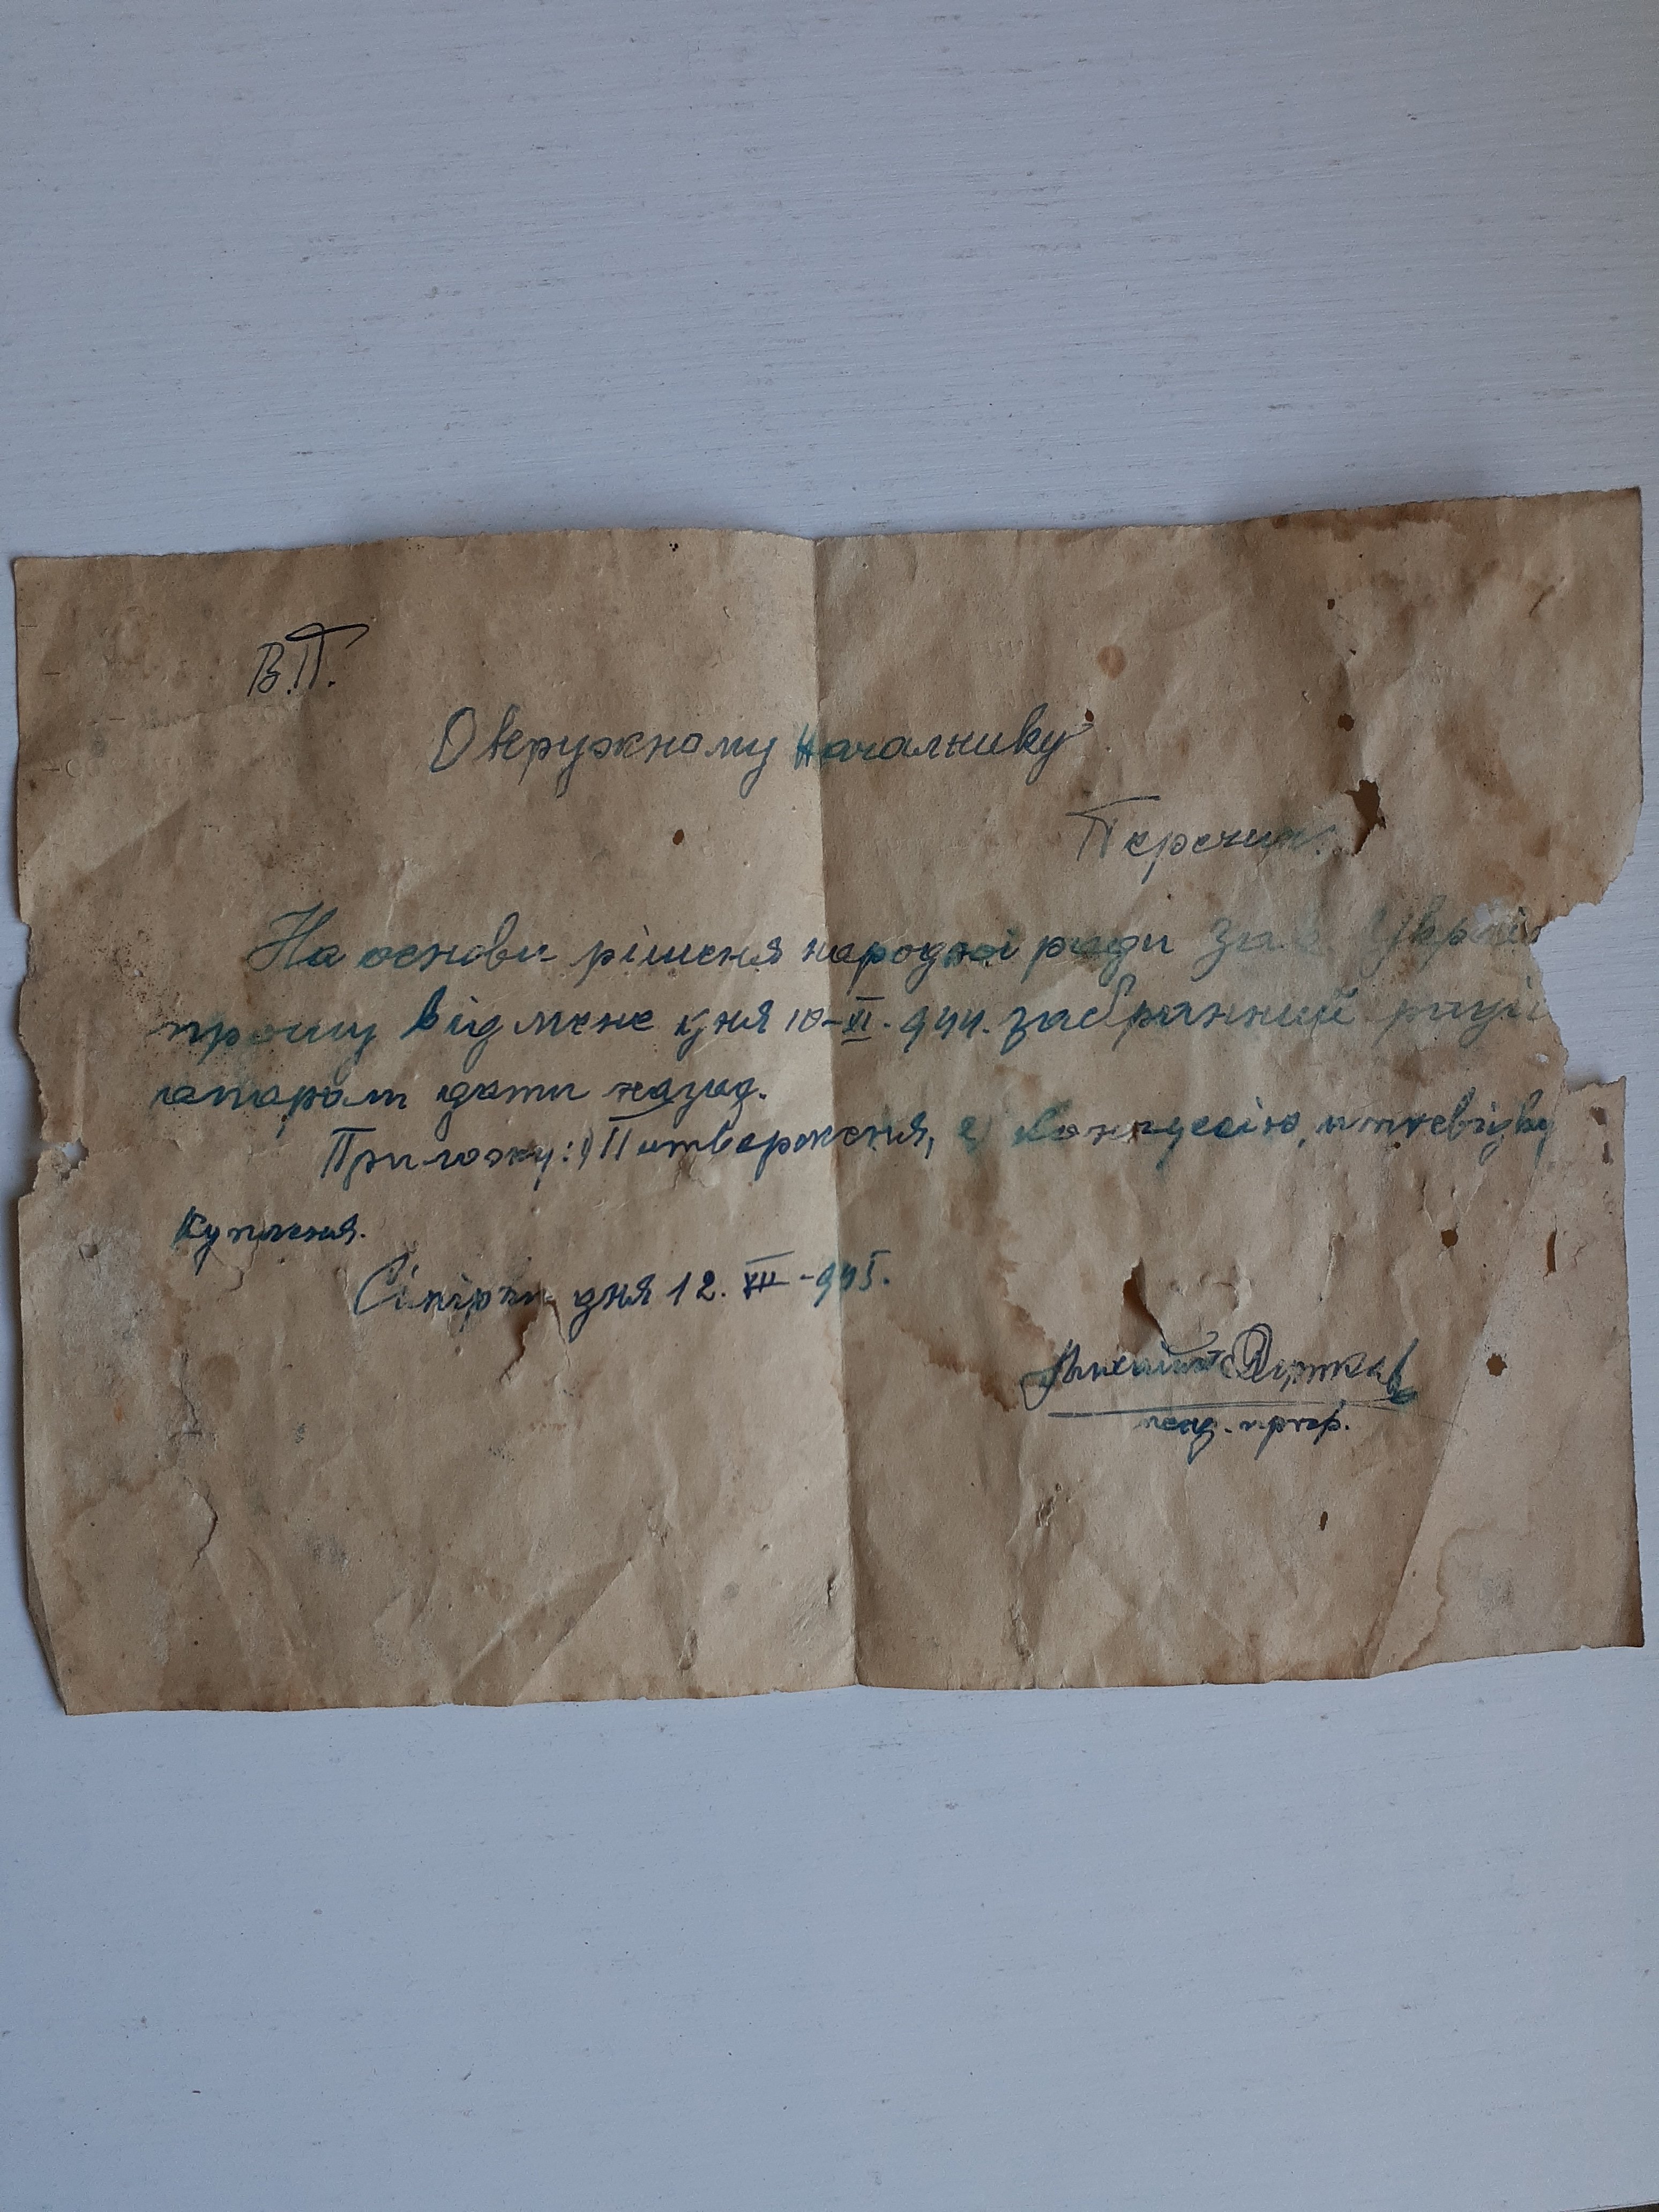 В.П.
Окружному началнику
Перечин.
На основи рішеня народної ради Зак. Україн
прошу від мене дня 10-XI. 944. забранний радіо
апарат дати назад.
Приложу: 1) Питверженя, 2) Концесію, и посвідку
Купленя.
Сімірки дня 12. XII - 945.
Михаил